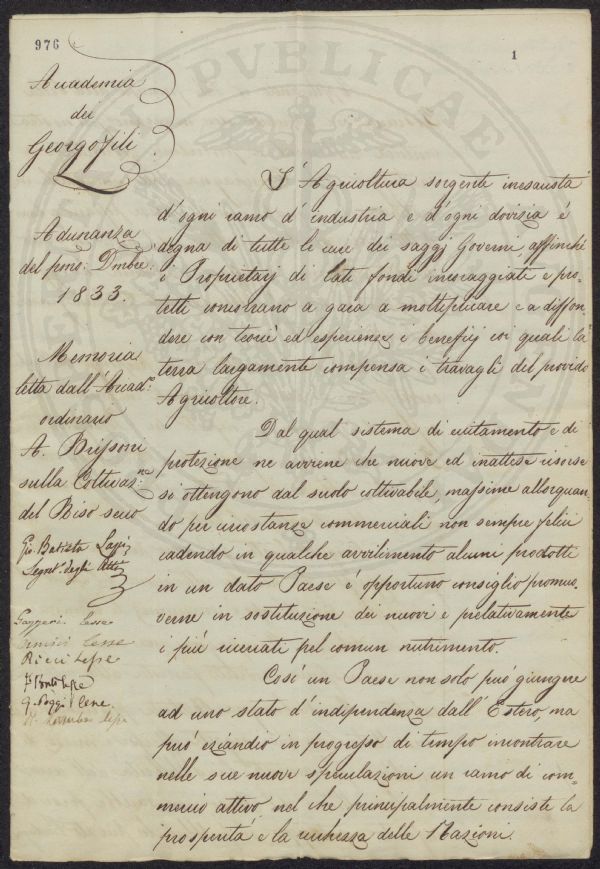 976
1
Accademia
dei
Georgofili.
Adunanza
del pmo: Dmbre:
1833.
Memoria
letta dall'Accad.o
ordinario
A.
sulla Coltivaz.ne
del Riso secco
Gio. Batista
Segret.o degli Atti
Gazzeri lesse
lesse
Ricci lesse
lesse
G. Poggi lesse.
lesse
PVBLICAE
L'Agricoltura sorgente inesausta
d'ogni ramo d'industria e d'ogni dovizia è
degna di tutte le cure dei saggj Governi, affinchè
i Proprietarj di lati fondi incoraggiate e pro=
tetti concorrano a gara a moltiplicare e a diffon=
dere con teorie ed esperienze i beneficj coi quali la
terra largamente compensa i travagli del provido
Agricoltore.
Dal qual sistema di eccitamento e di
protezione ne avviene che nuove ed inattese risorse
si ottengono dal suolo coltivabile, massime allorquan=
do per circostanze commerciali non sempre felici
cadendo in qualche avvilimento alcuni prodotti
in un dato Paese è opportuno consiglio promuo=
verne in sostituzione dei nuovi e prelativamente
i più ricercati pel comun nutrimento.
Così un Paese non solo può giungere
ad uno stato d'indipendenza dall'Estero, ma
può eziandio in progresso di tempo incontrare
nelle sue nuove speculazioni un ramo di com=
mercio attivo nel che principalmente consiste la
prosperità e la ricchezza delle Nazioni.